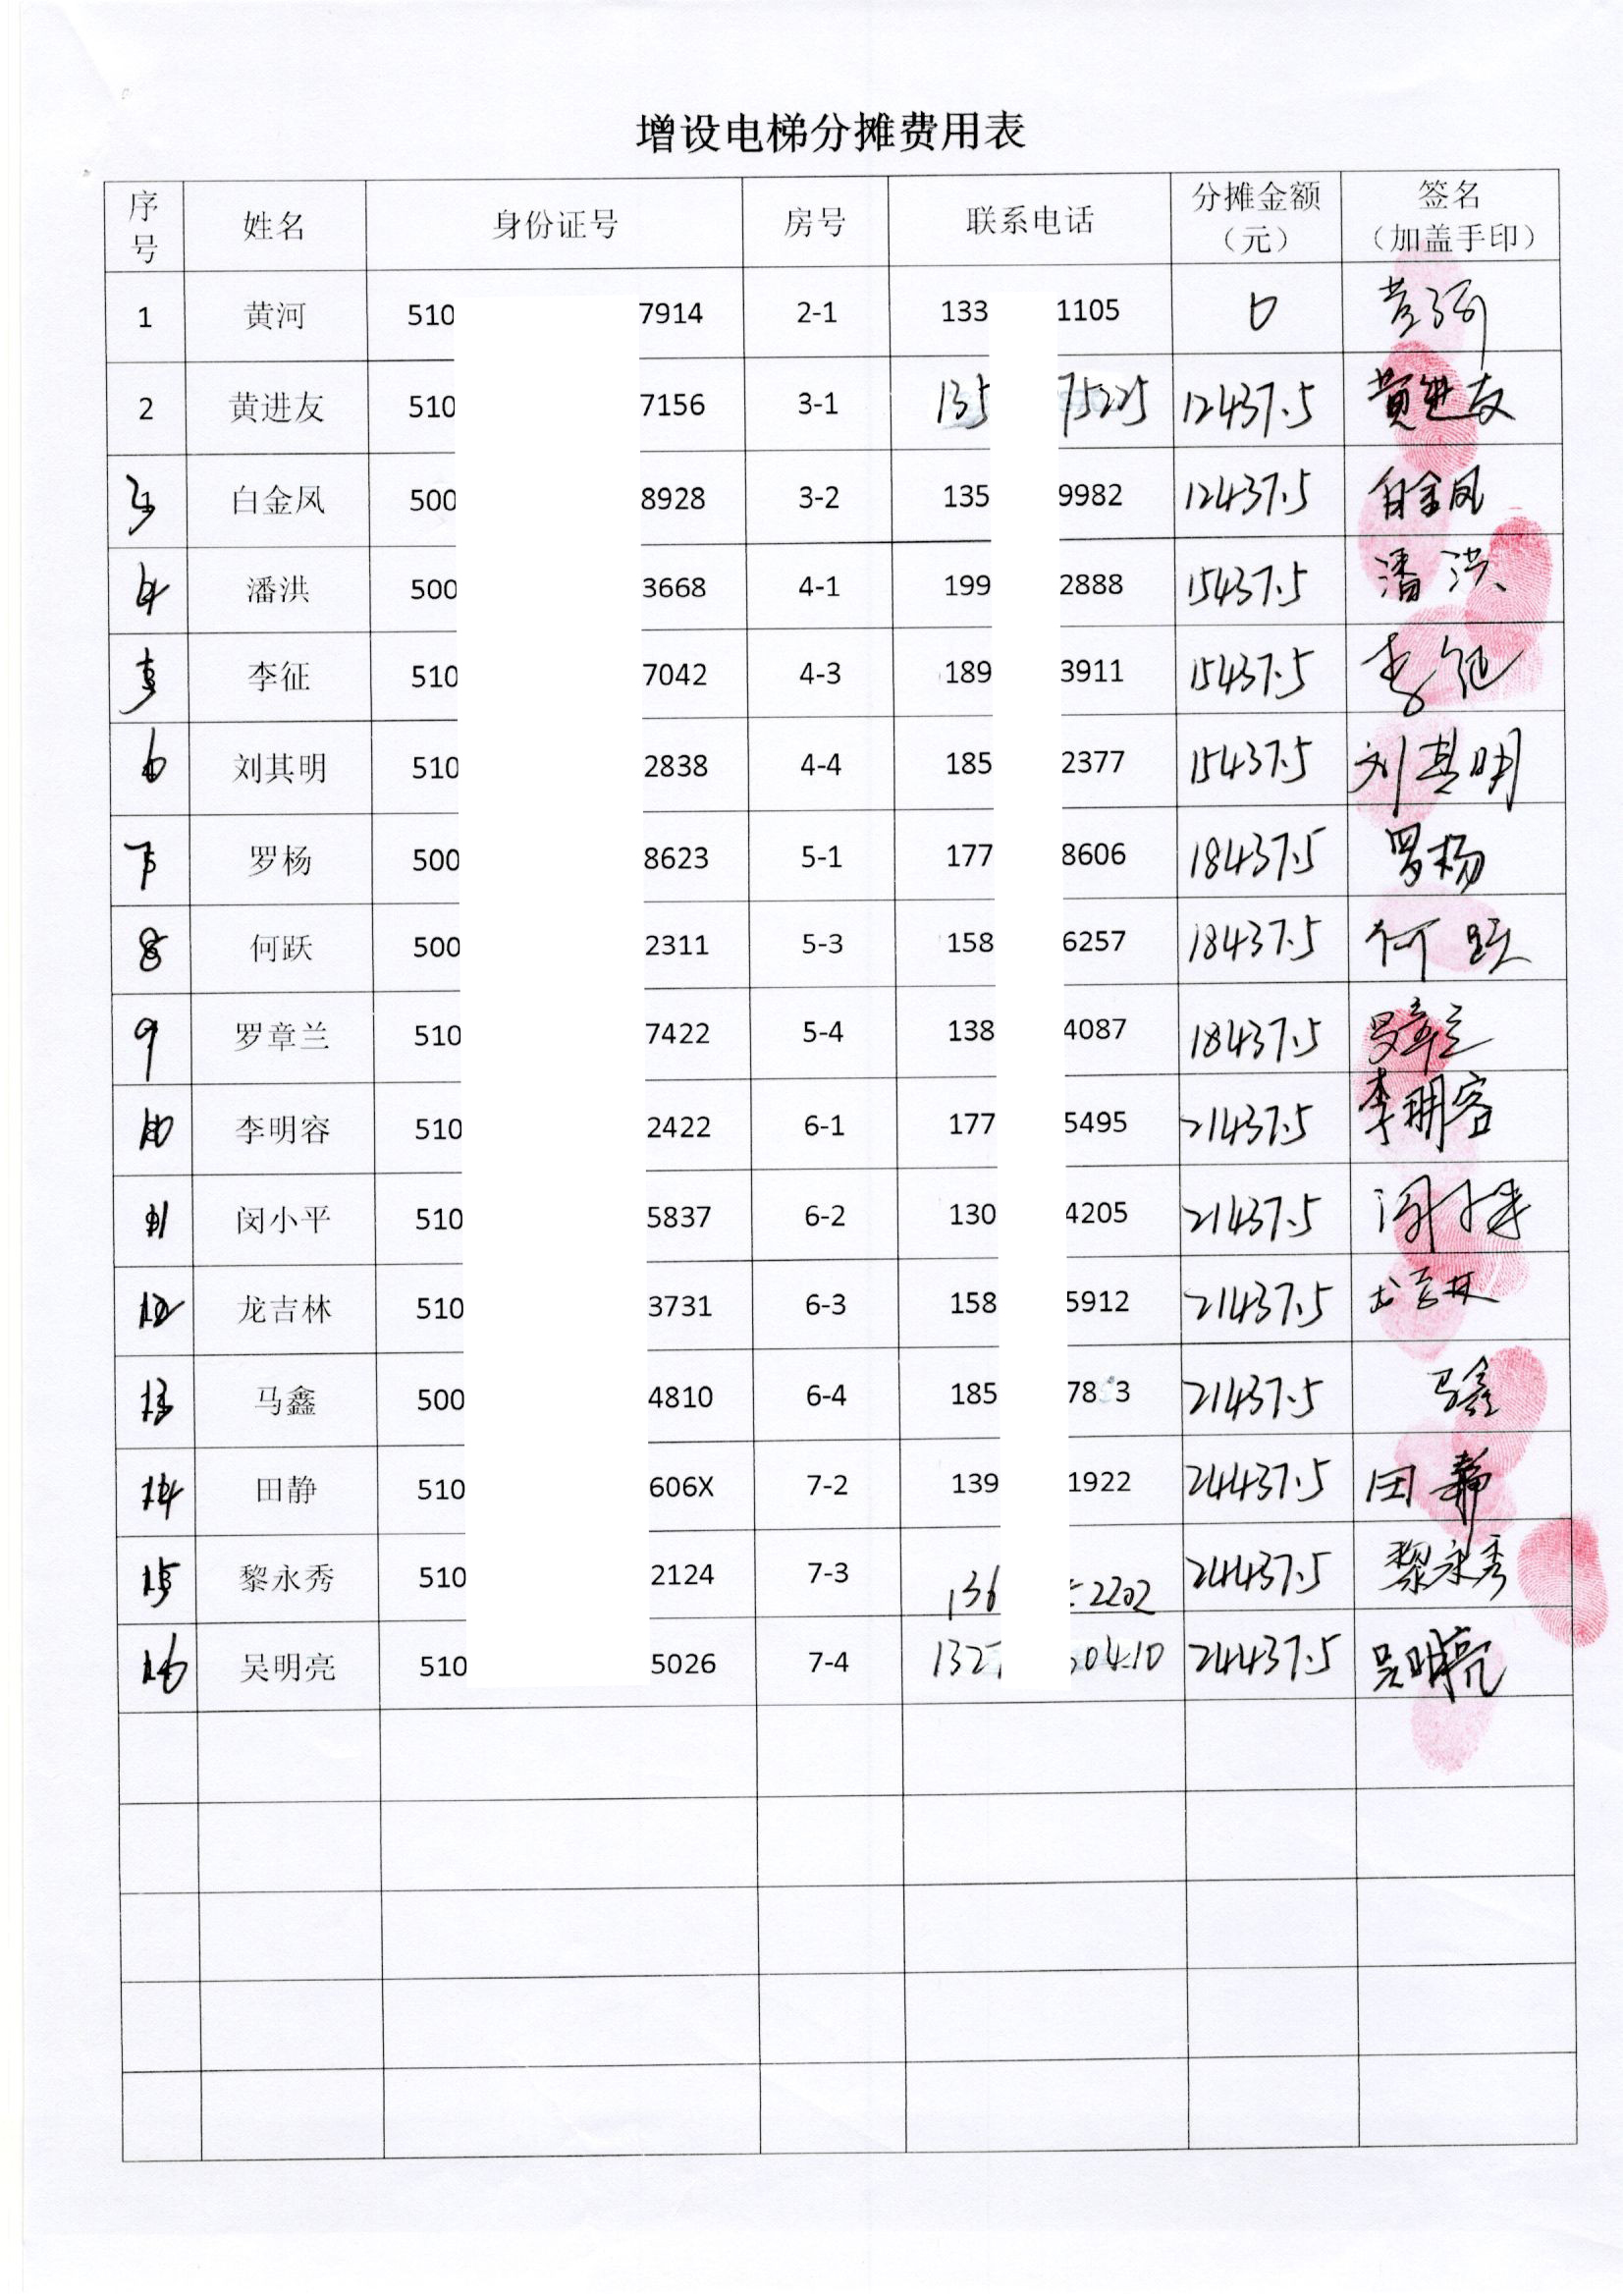 增设电梯分摊费用表
序号 姓名 身份证号 房号 联系电话 分摊金额（元） 签名（加盖手印）
1 黄河 510 7914 2-1 133 1105 0 黄河
2 黄进友 510 7156 3-1 135 75225 12437.5 黄进友
3 白金凤 500 8928 3-2 135 9982 12437.5 白金凤
4 潘洪 500 3668 4-1 199 2888 15437.5 潘洪
5 李征 510 7042 4-3 189 3911 15437.5 李征
6 刘其明 510 2838 4-4 185 2377 15437.5 刘其明
7 罗杨 500 8623 5-1 177 8606 18437.5 罗杨
8 何跃 500 2311 5-3 158 6257 18437.5 何跃
9 罗章兰 510 7422 5-4 138 4087 18437.5 罗章兰
10 李明容 510 2422 6-1 177 5495 21437.5 李明容
11 闵小平 510 5837 6-2 130 4205 21437.5 闵小平
12 龙吉林 510 3731 6-3 158 5912 21437.5 龙吉林
13 马鑫 500 4810 6-4 185 78 3 21437.5 马鑫
14 田静 510 606X 7-2 139 1922 24437.5 田静
15 黎永秀 510 2124 7-3 136 2202 24437.5 黎永秀
16 吴明亮 510 5026 7-4 132 0410 24437.5 吴明亮